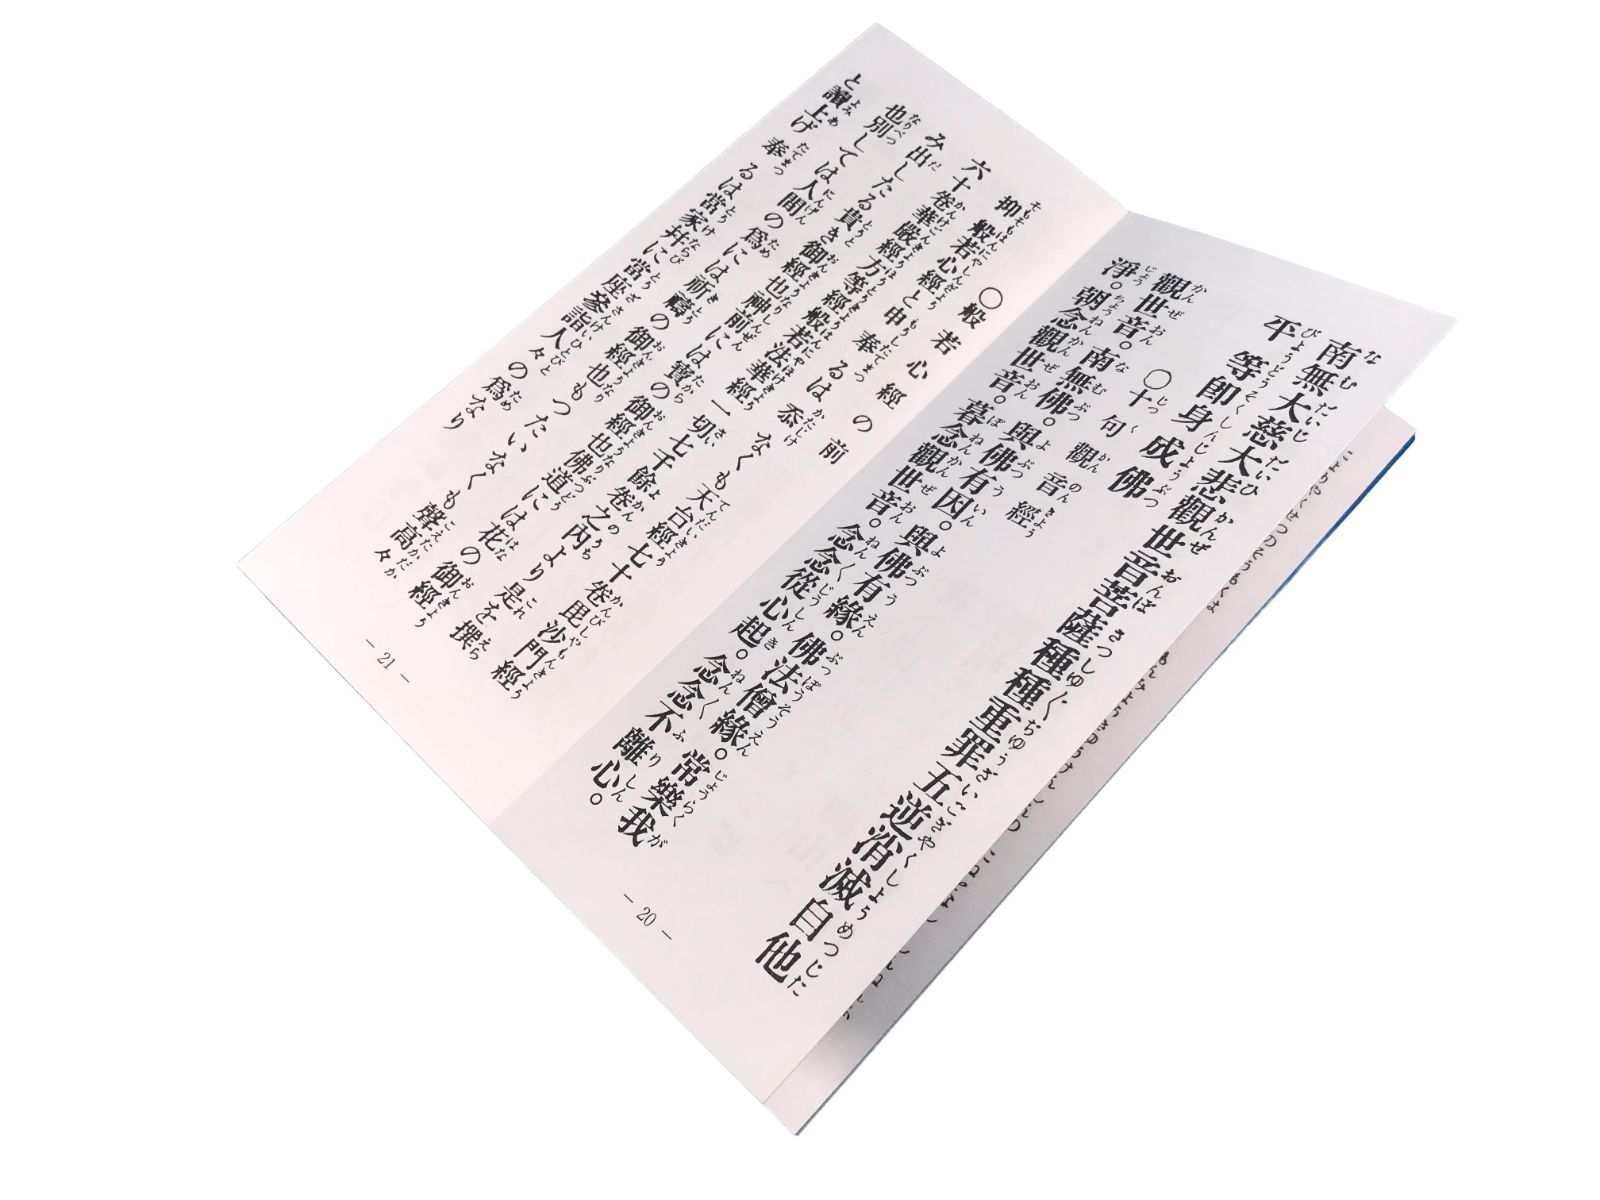 南無大慈大悲觀世音菩薩種種重罪五逆消滅自他
平等即身成佛
〇十句觀音經
觀世音。南無佛。與佛有因。與佛有緣。佛法僧緣。常樂我
淨。朝念觀世音。暮念觀世音。念念從心起。念念不離心。
－20－
〇般若心經の前
抑般若心經と申奉るは忝なくも天台經七十卷毘沙門經
六十卷華嚴經方等經般若法華經一切七千餘卷之內より是を撰
み出したる貴き御經也神前には寶の御經也佛道には花の御經
也別しては人間の爲には祈禱の御經也もつたいなくも聲高々
と讀上げ奉るは當家幷に當座參詣人々の爲なり
－21－